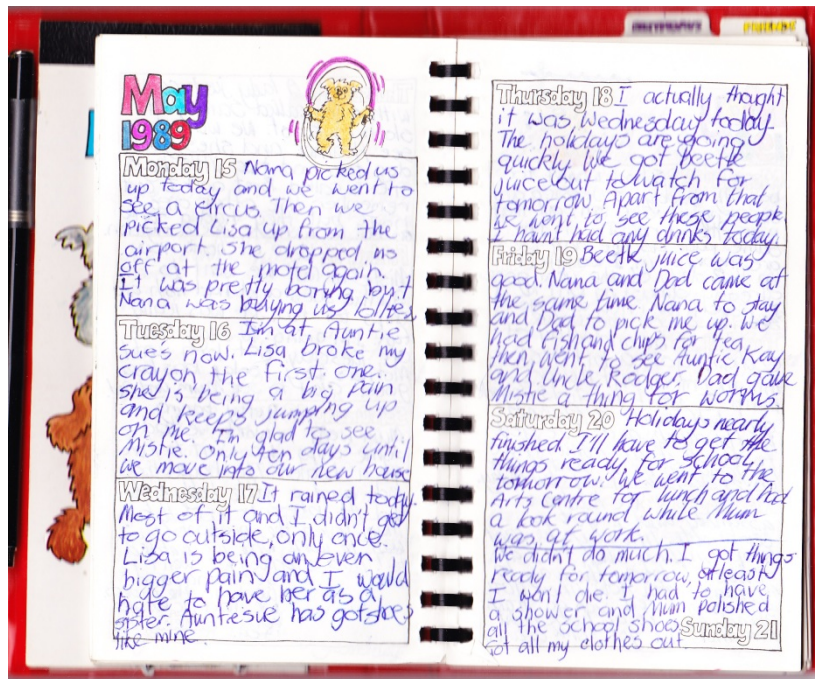 May
1989
Monday 15 Nana picked us
up today and we went to
see a circus. Then we
picked Lisa up from the
airport. She dropped us
off at the motel again.
It was pretty boring but
Nana was buying us lollies
Tuesday 16 I'm at Auntie
sues now. Lisa broke my
crayon, the first one.
she is being a big pain
and keeps jumping up
on me. I'm glad to see
Mistie. Only ten days until
we move into our new house
Wednesday 17 It rained today.
Most of it and I didn't get
to go outside, only once.
Lisa is being an even
bigger pain and I would
hate to have her as a
sister. Auntie sue has got shoes
like mine.
Thursday 18 I actually thought
it was Wednesday today.
The holidays are going
quickly We got Beetle
juice out to watch for
tomorrow. Apart from that
we went to see these people
I havnt had any drinks today.
Friday 19 Beetle juice was
good. Nana and Dad came at
the same time. Nana to stay
and Dad to pick me up. We
had fish and chips for tea
then went to see Auntie Kay
and Uncle Rodger. Dad gave
Mistie a thing for worms.
Saturday 20 Holidays nearly
finished. I'll have to get the
things ready for school
tomorrow. We went to the
Arts Centre for lunch and had
a look round while Mum
was at work.
We didn't do much. I got things
ready for tomorrow, atleast
I wont die. I had to have
a shower and Mum polished
all the school shoes Sunday 21
Got all my clothes out